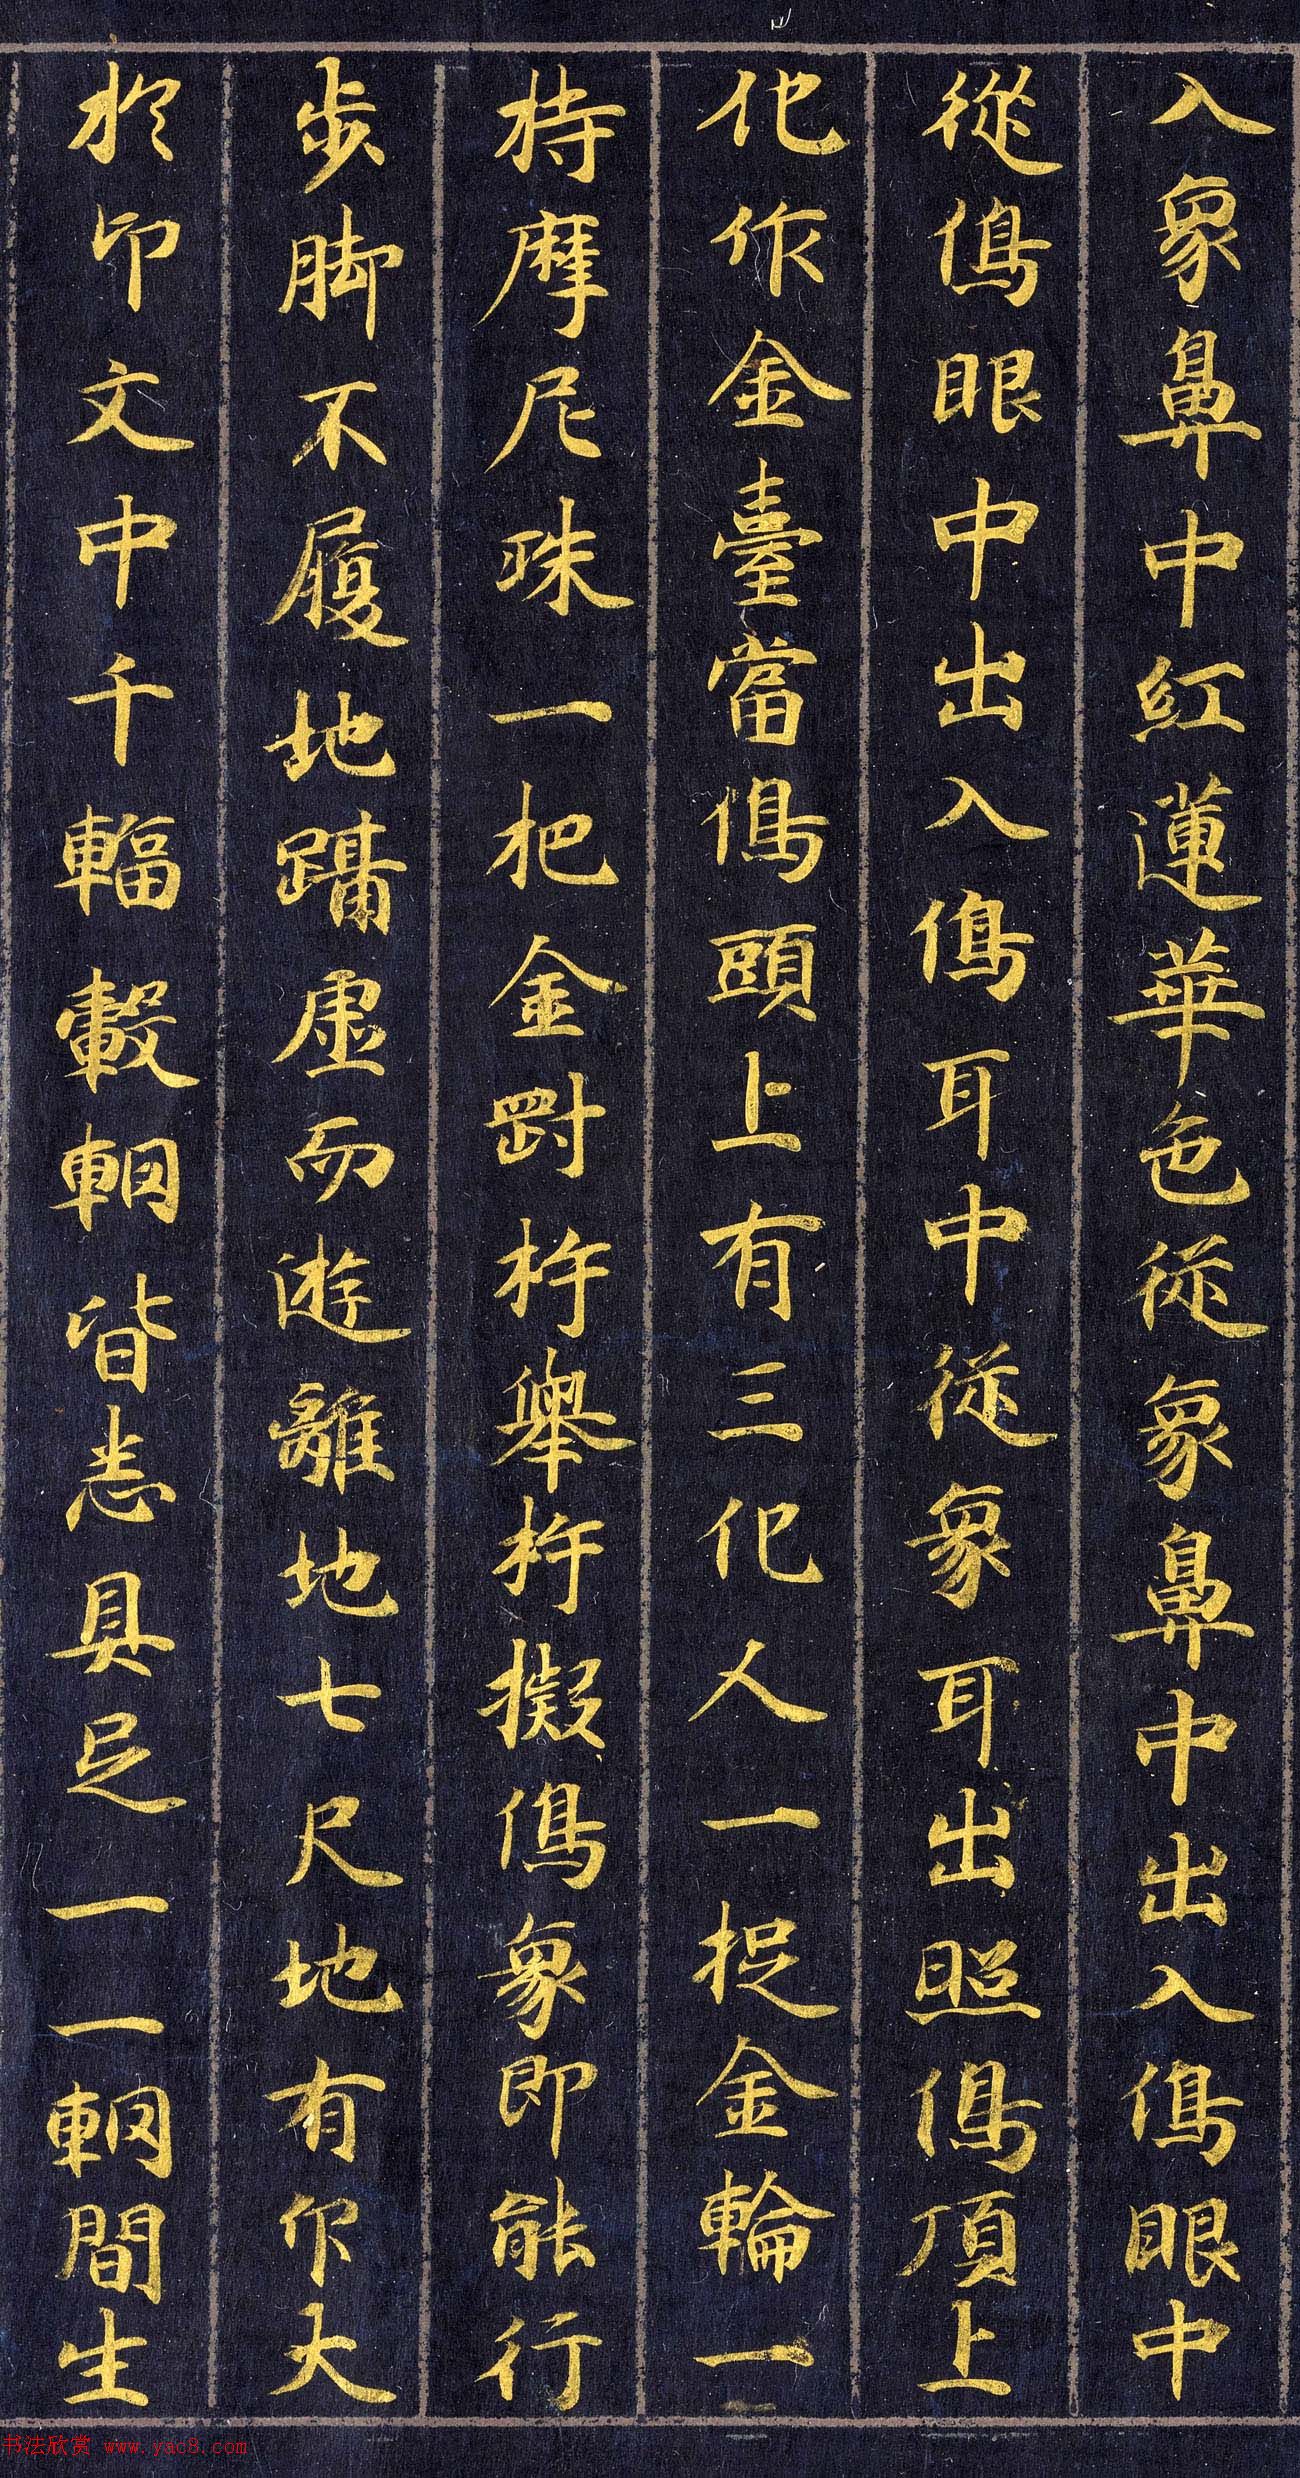 入象鼻中紅蓮華色從象鼻中出入傿眼中
從傿眼中出入傿耳中從象耳出照傿頂上
化作金臺當傿頭上有三化人一捉金輪一
持摩尼珠一把金剛杵舉杵擬傿象即能行
步脚不履地躡虛而遊離地七尺地有印大
於印文中千輻轂輞皆悉具足一一輞間生
书法欣赏 www.yac8.com